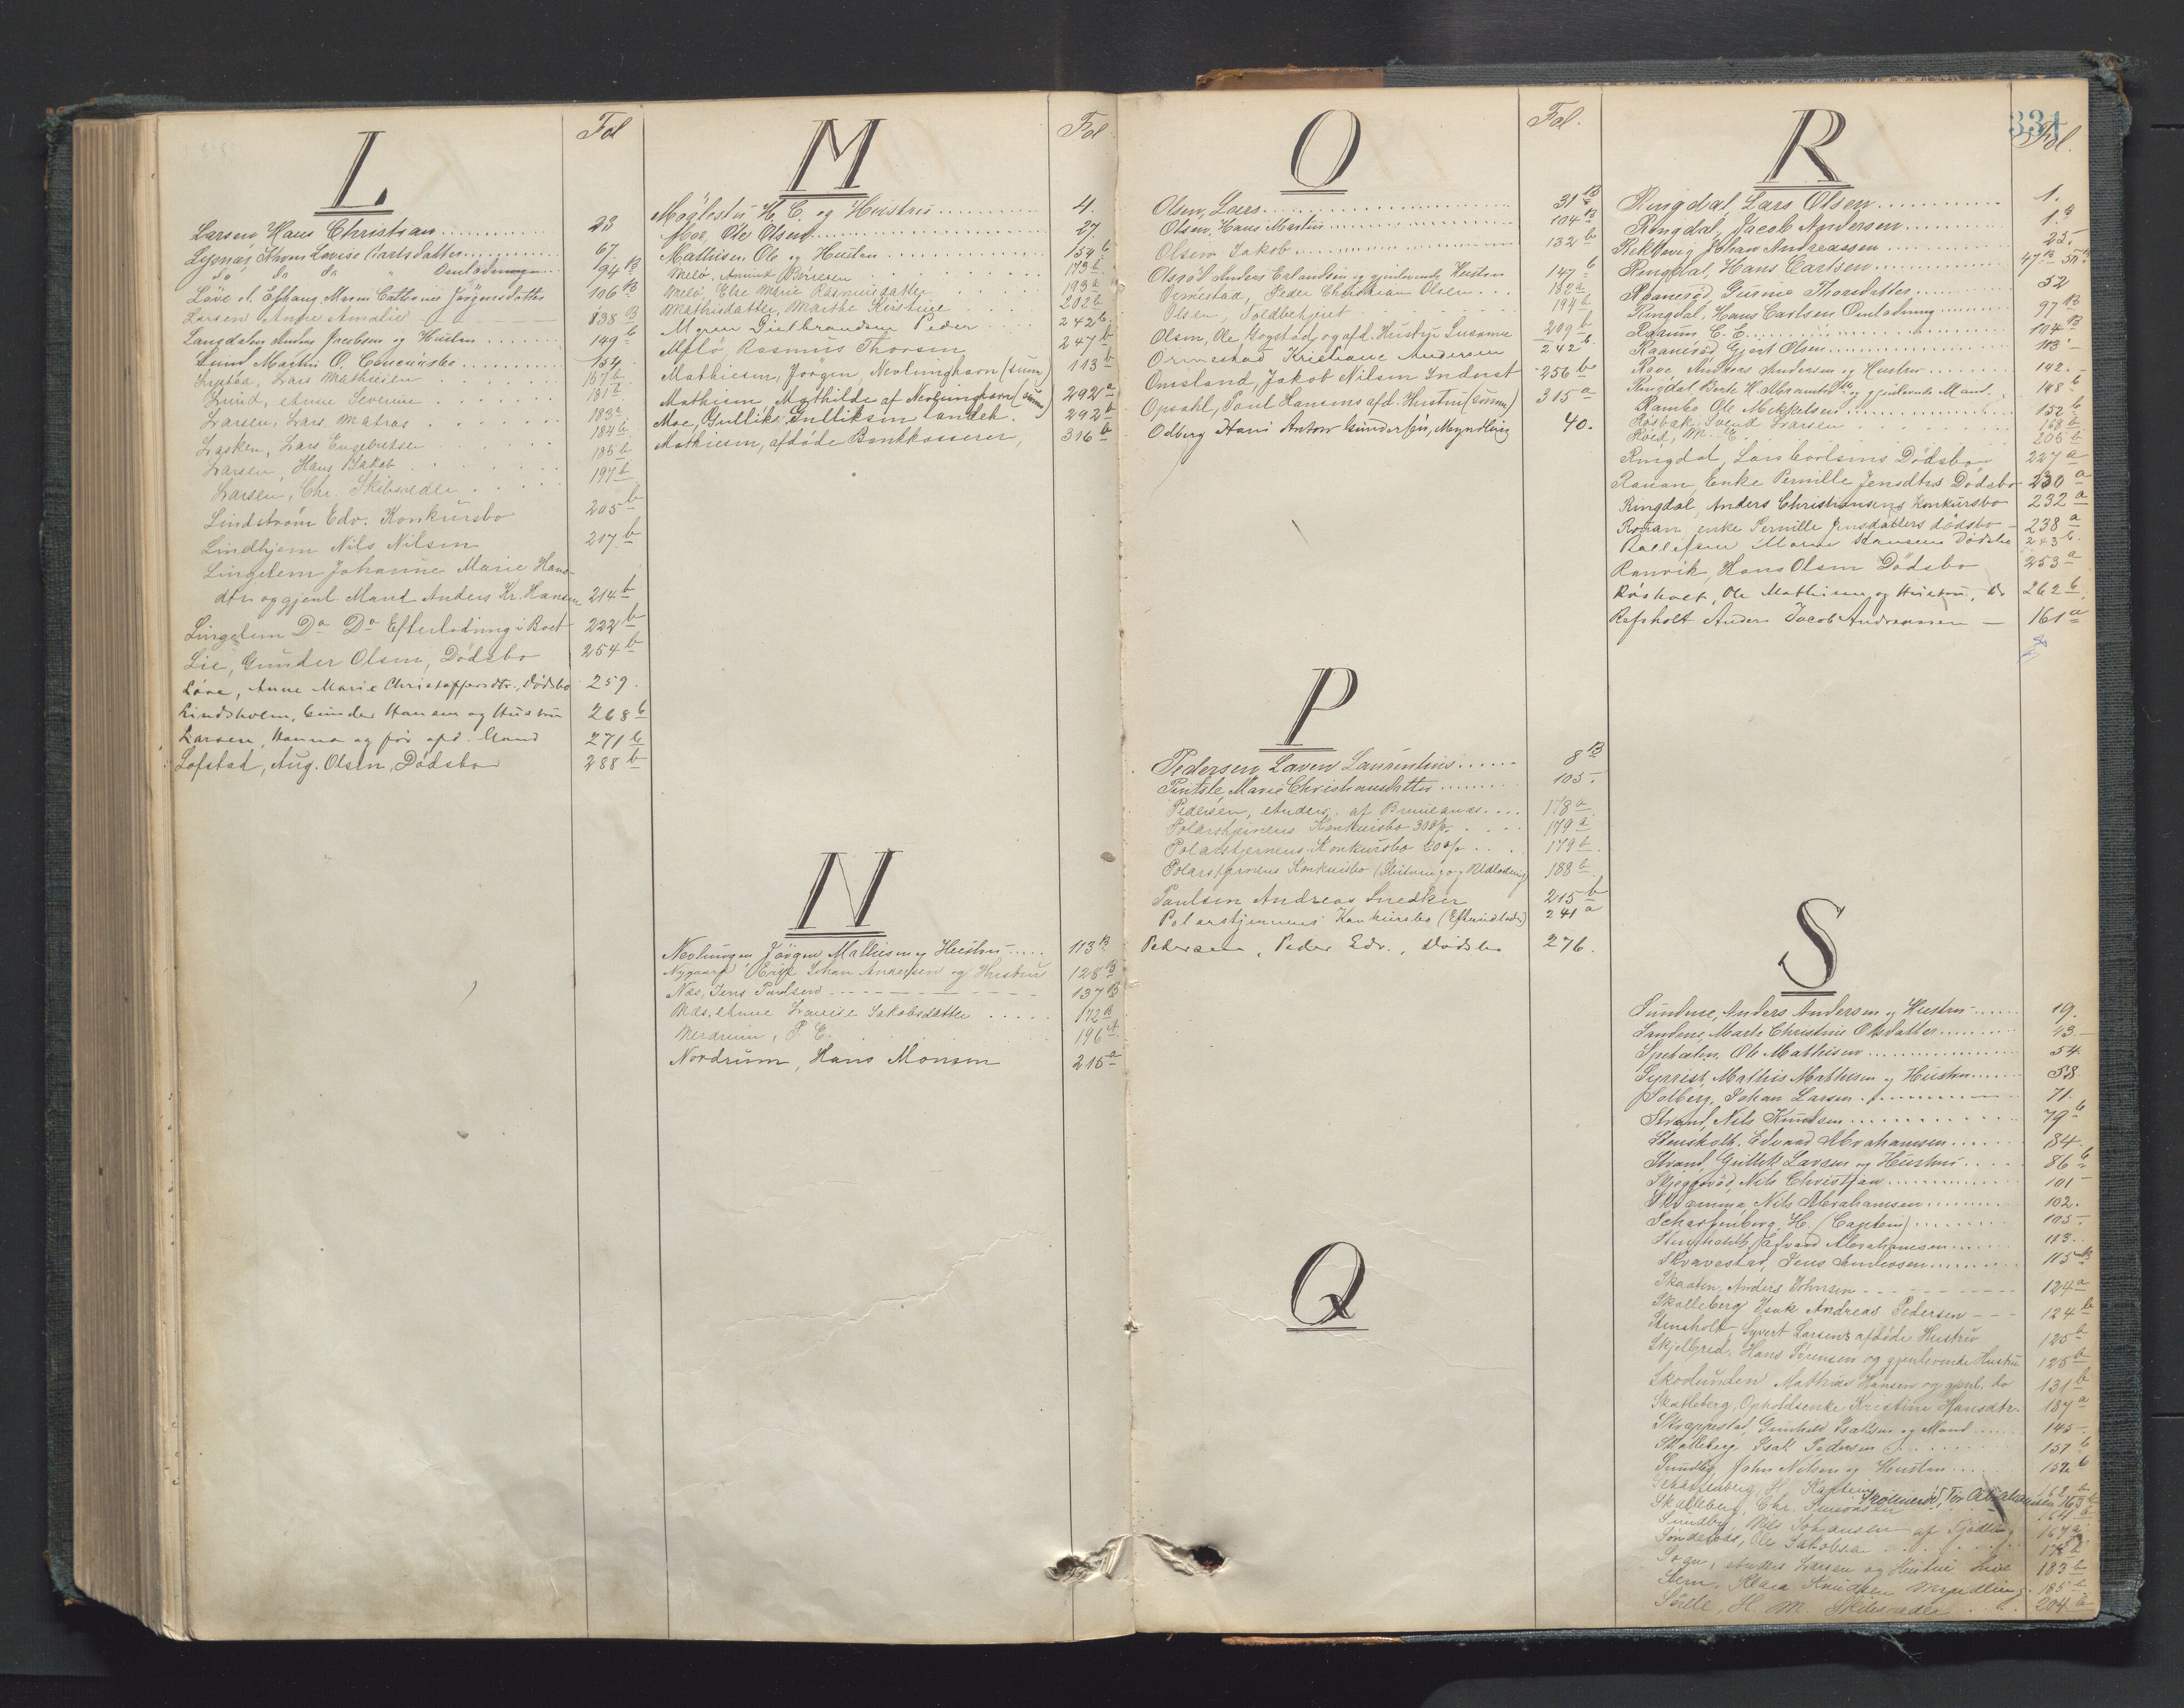 L
Fol
Larsen Hans Christian 23
Lysnæs Karen Lovise Carlsdatter 67.
do do do Omlodning 94 B
Løve Marn Cathrine Jörgensdatter 106 B
Larsen Anne Amalie 138 B
Langdalen Anders Jacobsen og Hustru 149 b
Lund Martin O. Concursbo 154
Lars Mathisen 157 b
Lund, Anne Severine 181 b
Larsen, Lars Matros 183 a
Lasken, Lars Engebretsen 184 b
Larsen, Hans Jakob 185 b
Larsen, Chr. Skibsreder 197 b
Lindström Edv. Konkursbo 205 b
Lindhjem Nils Nilsen 217 b
Lingelem Johanne Marie Hans-
dtr. og gjenl. Mand Anders Kr. Hansen 214 b
Lingelem Do Do Efterlodning i Boet 222 b
Lie, Gunder Olsen, Dödsbo 254 b
Löve, Anne Marie Christoffersdtr., Dödsbo 259.
Lindsholm, Gunder Hansen og Hustru 268 b
Larsen, Hanna og før afd. Mand 271 b
Lofstad, Aug. Olsen, Dødsbo 288 b
M
Fol
H. C. og Hustru 4.
Moe, Ole Olsen 27.
Mathisen, Ole og Hustru 154 b
Melö, Amund Börresen 173 b
Melö, Else Marie Rasmusdatter 193 a
Mathisdatter, Marthe Kirstine 202 b
Myren Gulbrandsen Peder 242 b
Melö, Rasmus Thorsen 247 b
Mathiesen, Jörgen, Nevlunghavn (sum) 113 b
Mathiesen, Mathilde af Nevlunghavn (sum) 292 a
Moe, Gullik Gulliksen 292 b
Mathiesen, afdøde Bankkasserer, 316 b
N
Nevlungen Jörgen Mathisen og Hustru 113 B
Nygaard Erik Johan Andersen og Hustru 128 B
Næs, Jens Paulsen 137 B
Næs, Anne Lovise Jakobsdatter 172 B
Nerdrum, P. E. 196 A
Nordrum, Hans Monsen 215 a
O
Fol.
Olsen, Lars 31 B
Olsen, Hans Martin 104 B
Olsen Jakob 132 b
Anders Erlandsen og gjenlevende Hustru 147 b
Ormestad, Peder Christian Olsen 162 a
Olsen, Toldbetjent 194 b
Olsen, Ole Gogstad, og afd. Hustru Susanne 209 b
Ormestad Kristiane Andersen 242 b.
Omsland, Jakob Nilsen Inderst 256 b
Opsahl, Paul Hansens afd. Hustru (sum) 315 a
Odberg Hans Anton Gundersen, Myndling 40.
P
Pedersen Laven Laurentius 8 B
Marie Christiansdatter 105.
Pedersen, Anders, af Brunlanæs 178 a
Polarstjernens Konkursbo 179 a
Polarstjernens Konkursbo 179 b
Polarstjernens Konkursbo (Slutning og Udlodning) 188 b
Paulsen Andreas Snedker 215 b
Polarstjernens Konkursbo 241 a
Petersen, Peder Edv., Dødsbo 276.
Q
R
334
Fol.
Ringdal, Lars Olsen 1.
Ringdal, Jacob Andersen 1. B
Rekkevig Johan Andreassen 25.
Ringdal, Hans Carlsen 47 B 50 B
Raanerød, Gurine Thorsdatter 52
Ringdal, Hans Carlsen Omlodning 97 B
C. E. 104 B
Raanerød Gjert Olsen 113.
Rove Anders Andersen og Hustru 142.
Ringdal Berte H. Abrahamsdtr og gjenlevende Mand 148 b
Rambo Ole Mikkelsen 152 b
Røsbak, Svend Larsen 168 b
Röed, M. E. 206 b
Ringdal, Lars Carlsens Dödsbo 227 a
Ranan, Enke Pernille Jensdtrs Dödsbo 230 a
Ringdal, Anders Christiansens Konkursbo 232 a
Ronan, enke Pernille Jensdatters dödsbo 238 a
Marie Hansens Dødsbo 243 b.
Ranvik, Hans Olsen Dødsbo 253 a
Röshalt, Ole Mathisen og Hustru, do 262 b
Refsholt Anders Jacob Andreassen 161 a
S
Sundene, Anders Andersen og Hustru 19.
Sundene, Marte Christine Olsdatter 43
Ole Mathisen 54.
Syrrist, Mathis Mathisen og Hustru 58.
Solberg, Johan Larsen 71.
Strand, Nils Knudsen 79 b
Stensholt, Edvard Abrahamsen 84.
Strand, Gullik Larsen og Hustru 86 b
Nils Christian 101
Skramma, Nils Abrahamsen 102.
Scharfenberg, H. (Captein) 105.
Stensholdt, Edvard Abrahamsen 113.
Skravestad, Jens Andersen 115 B
Skaaten, Anders Johnsen 124 a
Skalleberg Isak Andreas Pedersen 124 b
Stensholt, Syvert Larsens afdöde Hustru 125 b
Skjelbred, Hans Sörensen og gjenlevende Hustru 125 b
Skovlunden Mathias Hansen og gjenl. do 131 b
Skalleberg, Opholdsenke Kristine Hansdtr. 187 a
Gunhild Isaksen og Mand 145
Skalleberg, Isak Pedersen 151 b
Sundby, John Nilsen og Hustru 152 b
Scharffenberg, H. Kaptein 162 b
Tor Abrahamsen 163 b
Skalleberg, Chr. Simonsen 164 b
Sundby, Nils Johansen af Tjødling 167 a
Ole Jakobsen 175 b
Anders Larsen og Hustru Live 183 b
Stern, Klara Knudsen Myndling 185 b
H. M. Skibsreder 204 b